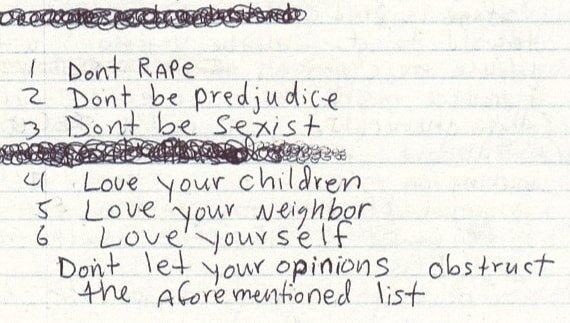 1 Dont RAPE
2 Dont be predjudice
3 Dont be sexist
4 Love your children
5 Love your Neighbor
6 Love yourself
Don't let your opinions obstruct
the Aforementioned list